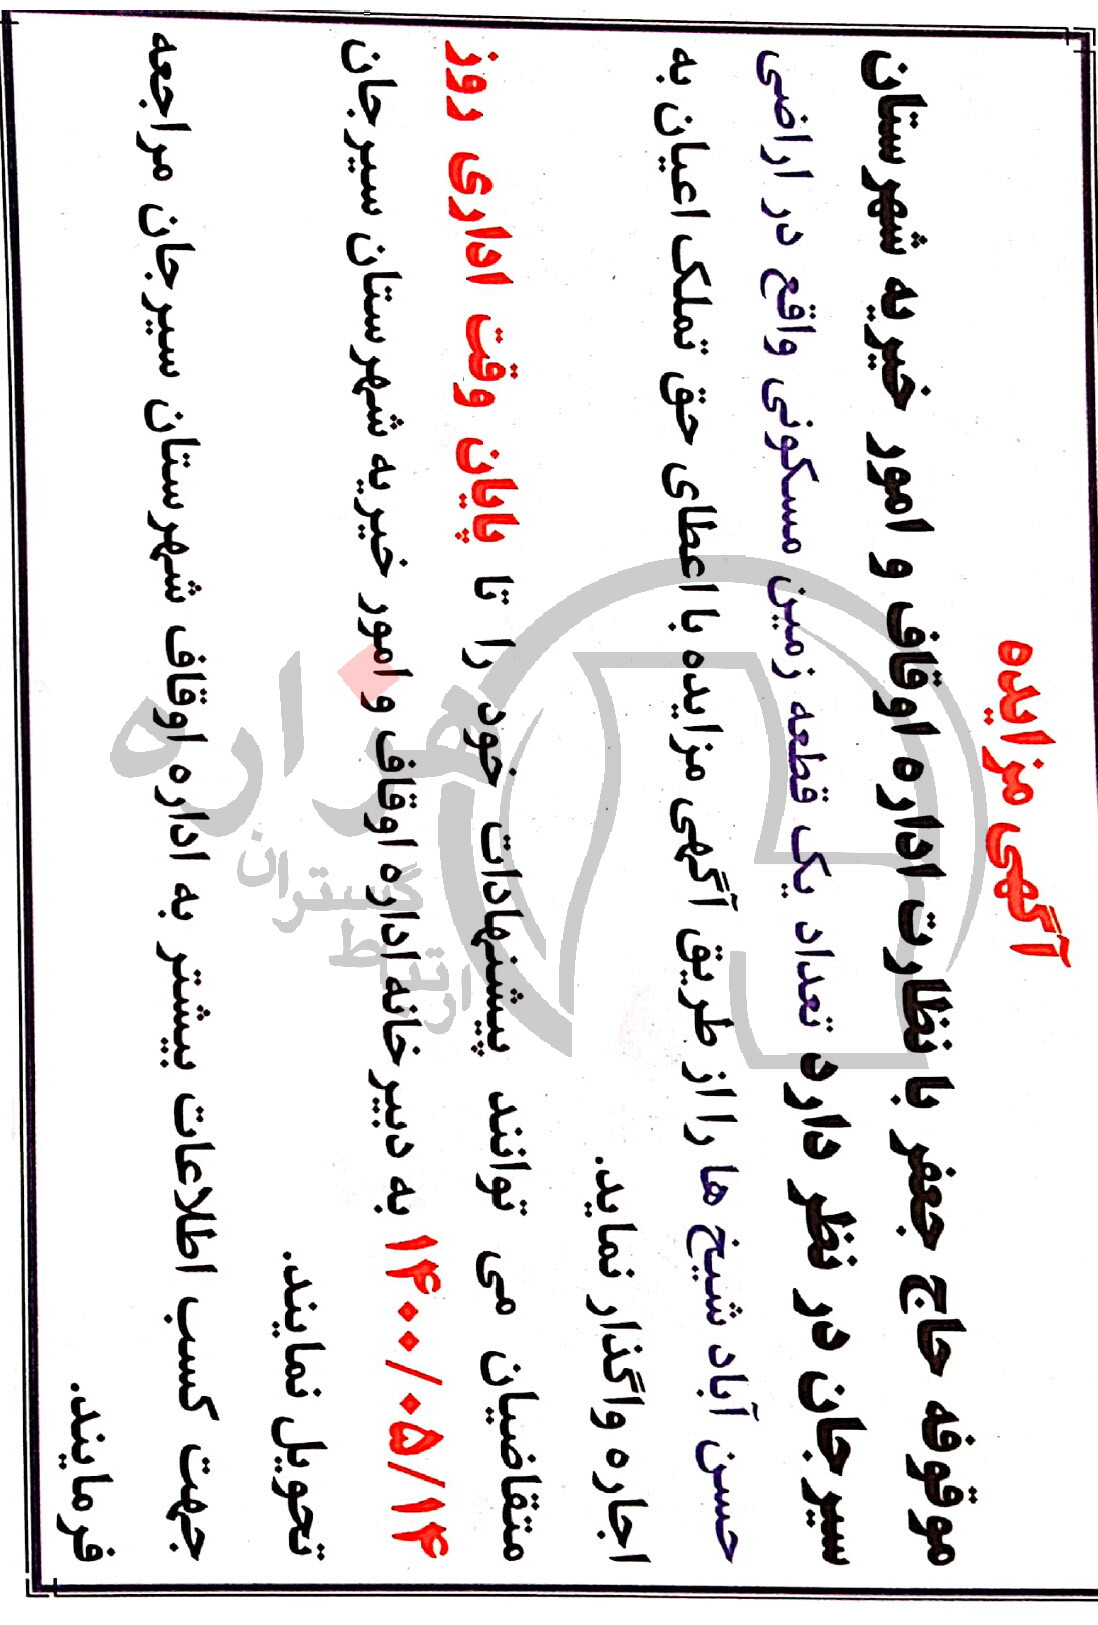 آگهی مزایده
موقوفه حاج جعفر با نظارت اداره اوقاف و امور خیریه شهرستان
سیرجان در نظر دارد تعداد یک قطعه زمین مسکونی واقع در اراضی
حسن آباد شیخ ها را از طریق آگهی مزایده با اعطای حق تملک اعیان به
اجاره واگذار نماید.
متقاضیان می توانند پیشنهادات خود را تا پایان وقت اداری روز
۱۴۰۰/۰۵/۱۴ به دبیرخانه اداره اوقاف و امور خیریه شهرستان سیرجان
تحویل نمایند.
جهت کسب اطلاعات بیشتر به اداره اوقاف شهرستان سیرجان مراجعه
فرمایند.